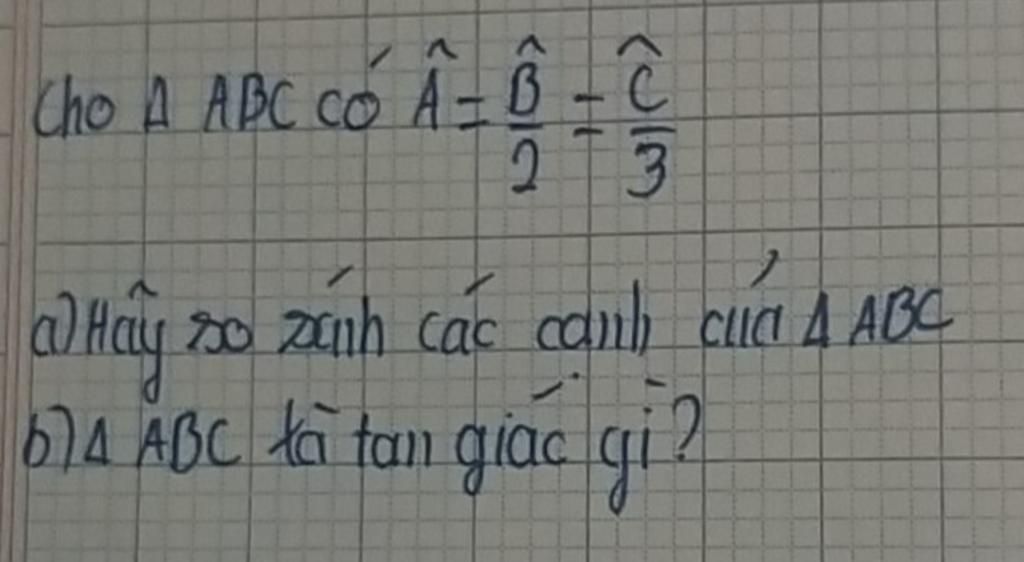 Cho Δ ABC có Â = B̂/2 = Ĉ/3
a) Hãy so sánh các cạnh của Δ ABC
b) Δ ABC là tam giác gì?